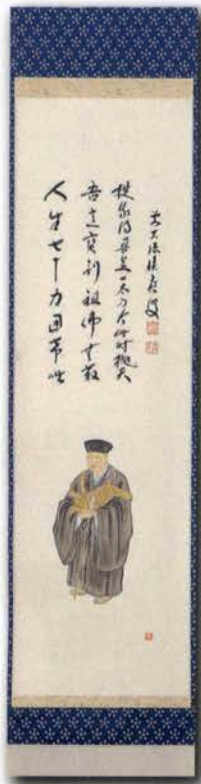 人生七十力囲希咄
吾這寳剣祖佛共殺
提我得具足一太刀今此時抛天